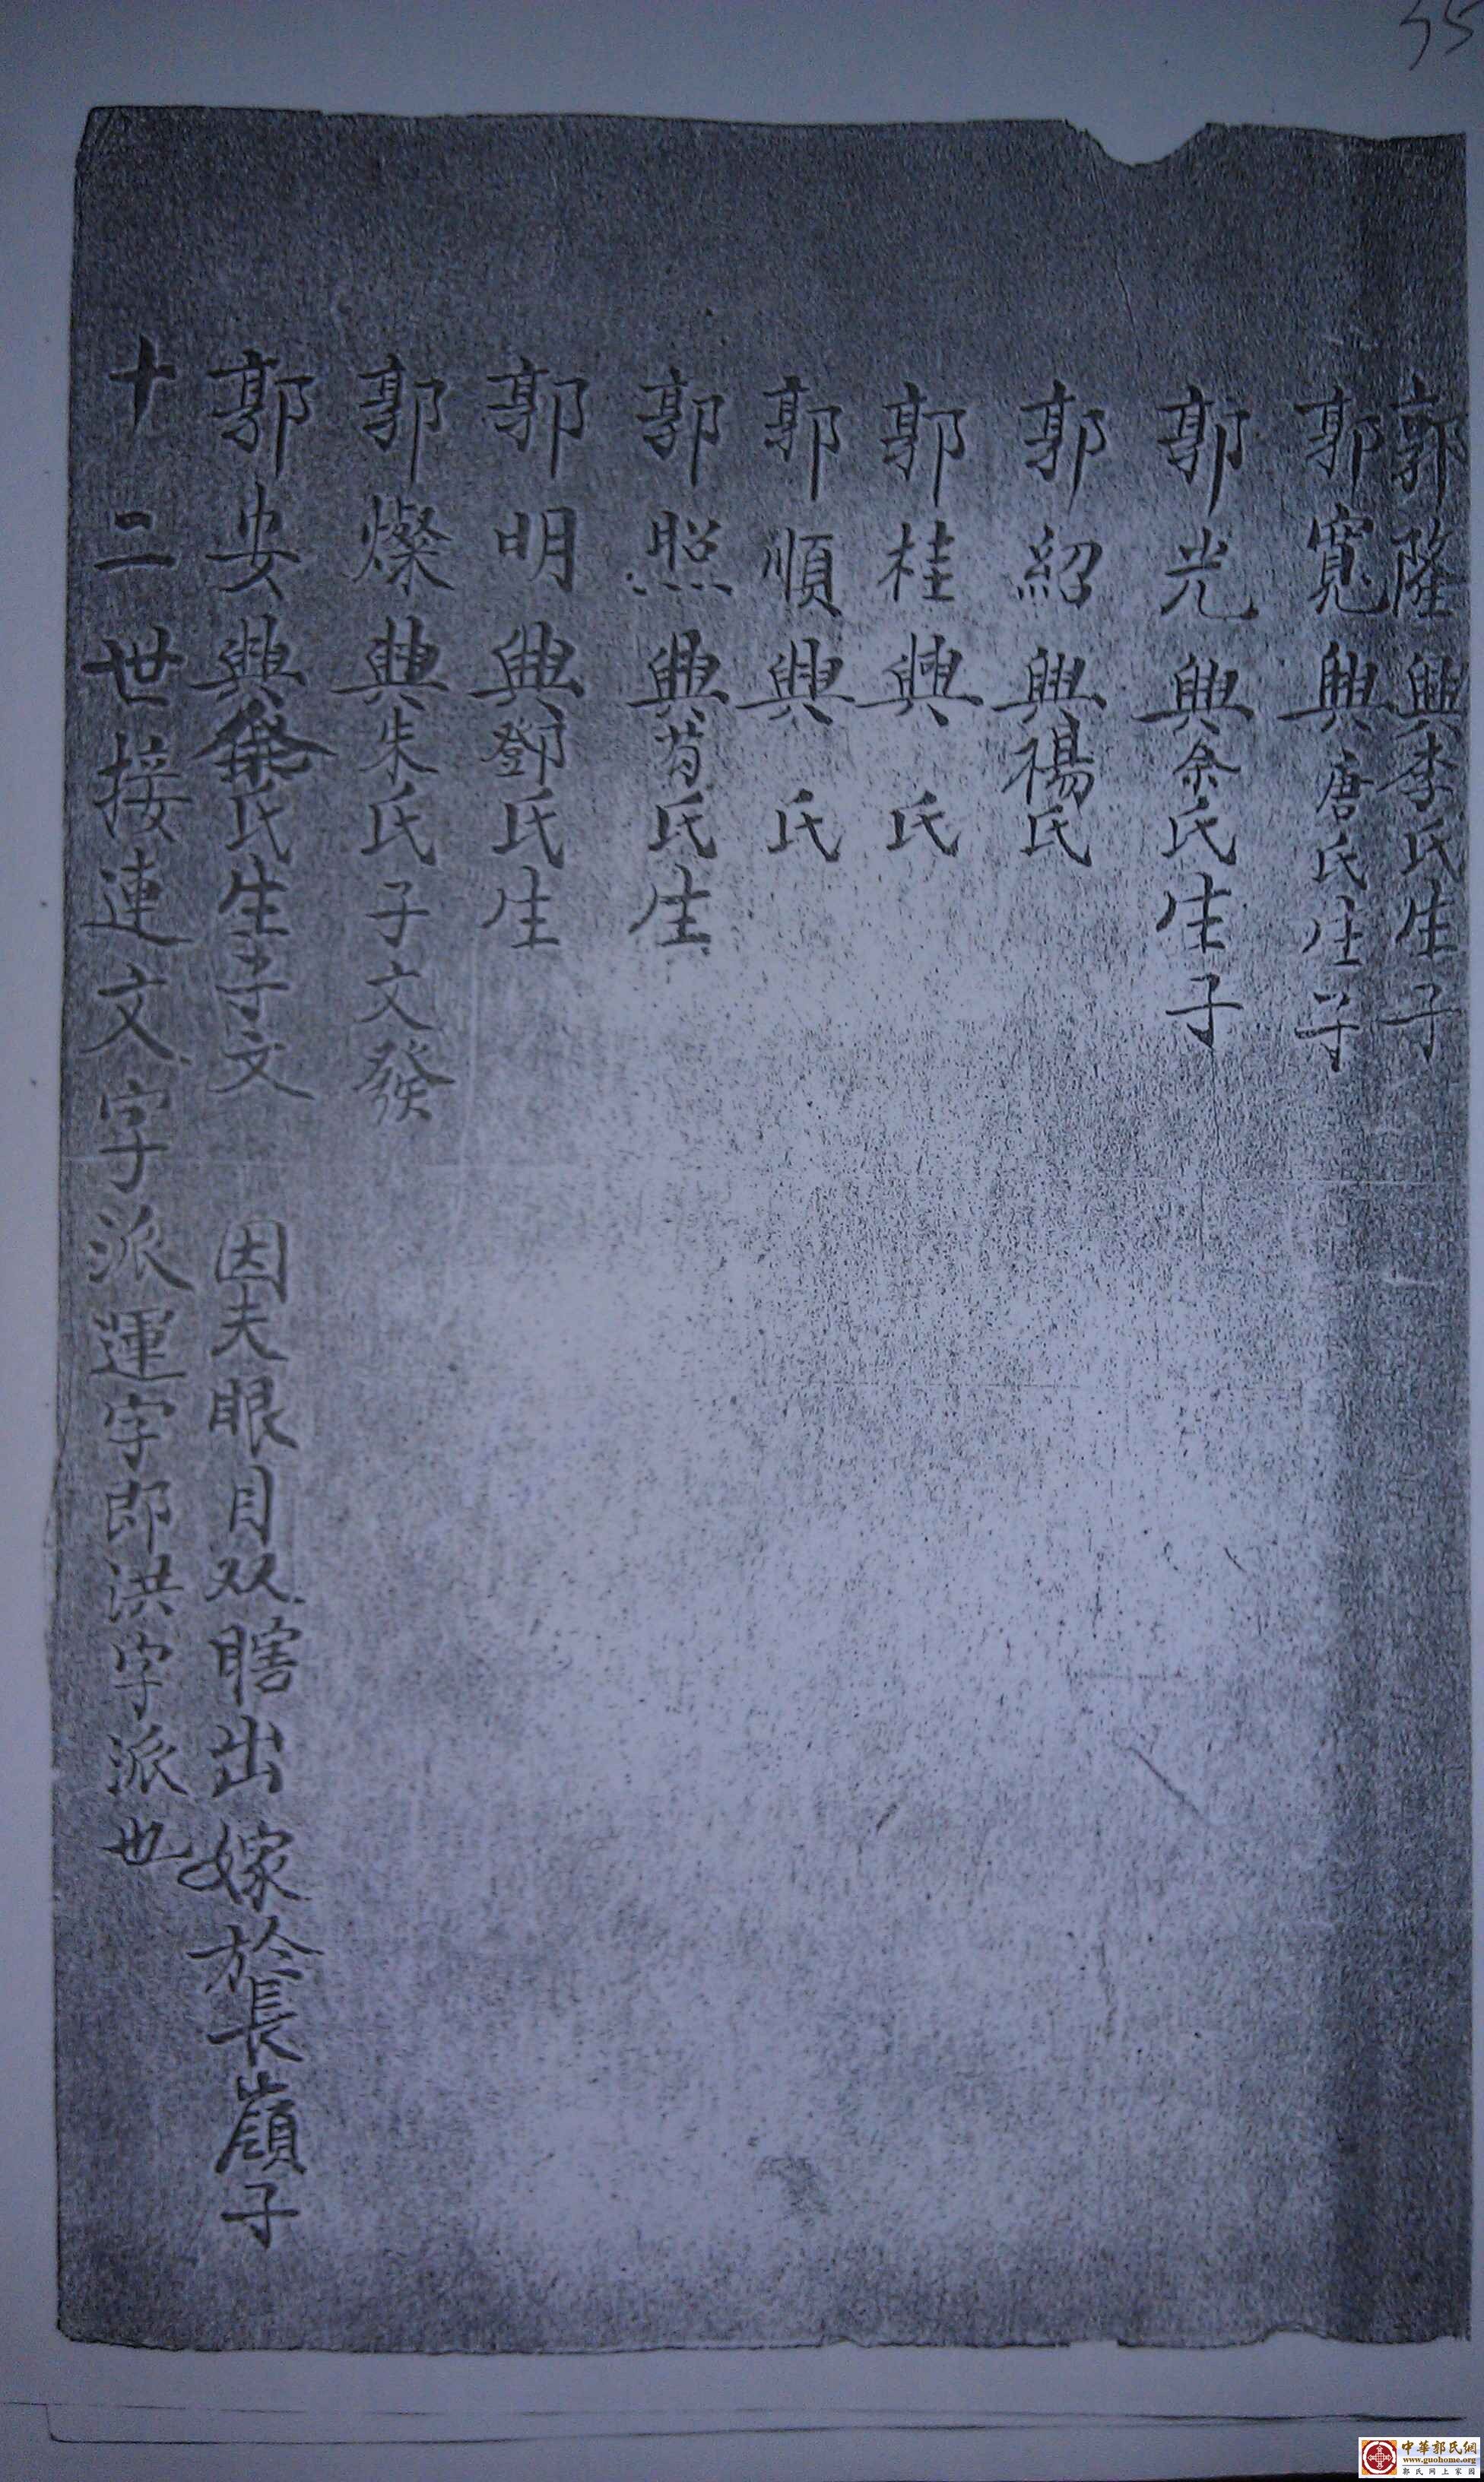 35
郭隆興李氏生子
郭寬興唐氏生子
郭光興余氏生子
郭紹興楊氏
郭桂興 氏
郭順興 氏
郭照興芶氏生
郭明興鄧氏生
郭燦典朱氏子文發
郭安典 氏生子文 因夫眼目双瞎出嫁於長嶺子
十二世接連文字派運字郎洪字派也
中華郭氏網
www.guohome.org
郭氏网上家园